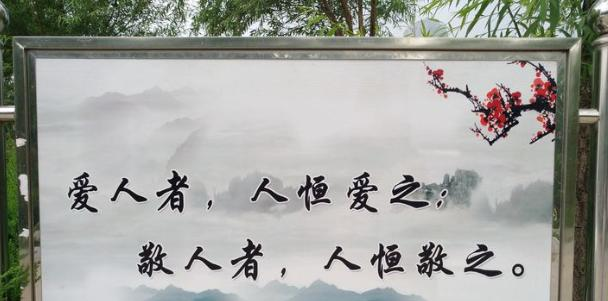 爱人者，人恒爱之；
敬人者，人恒敬之。